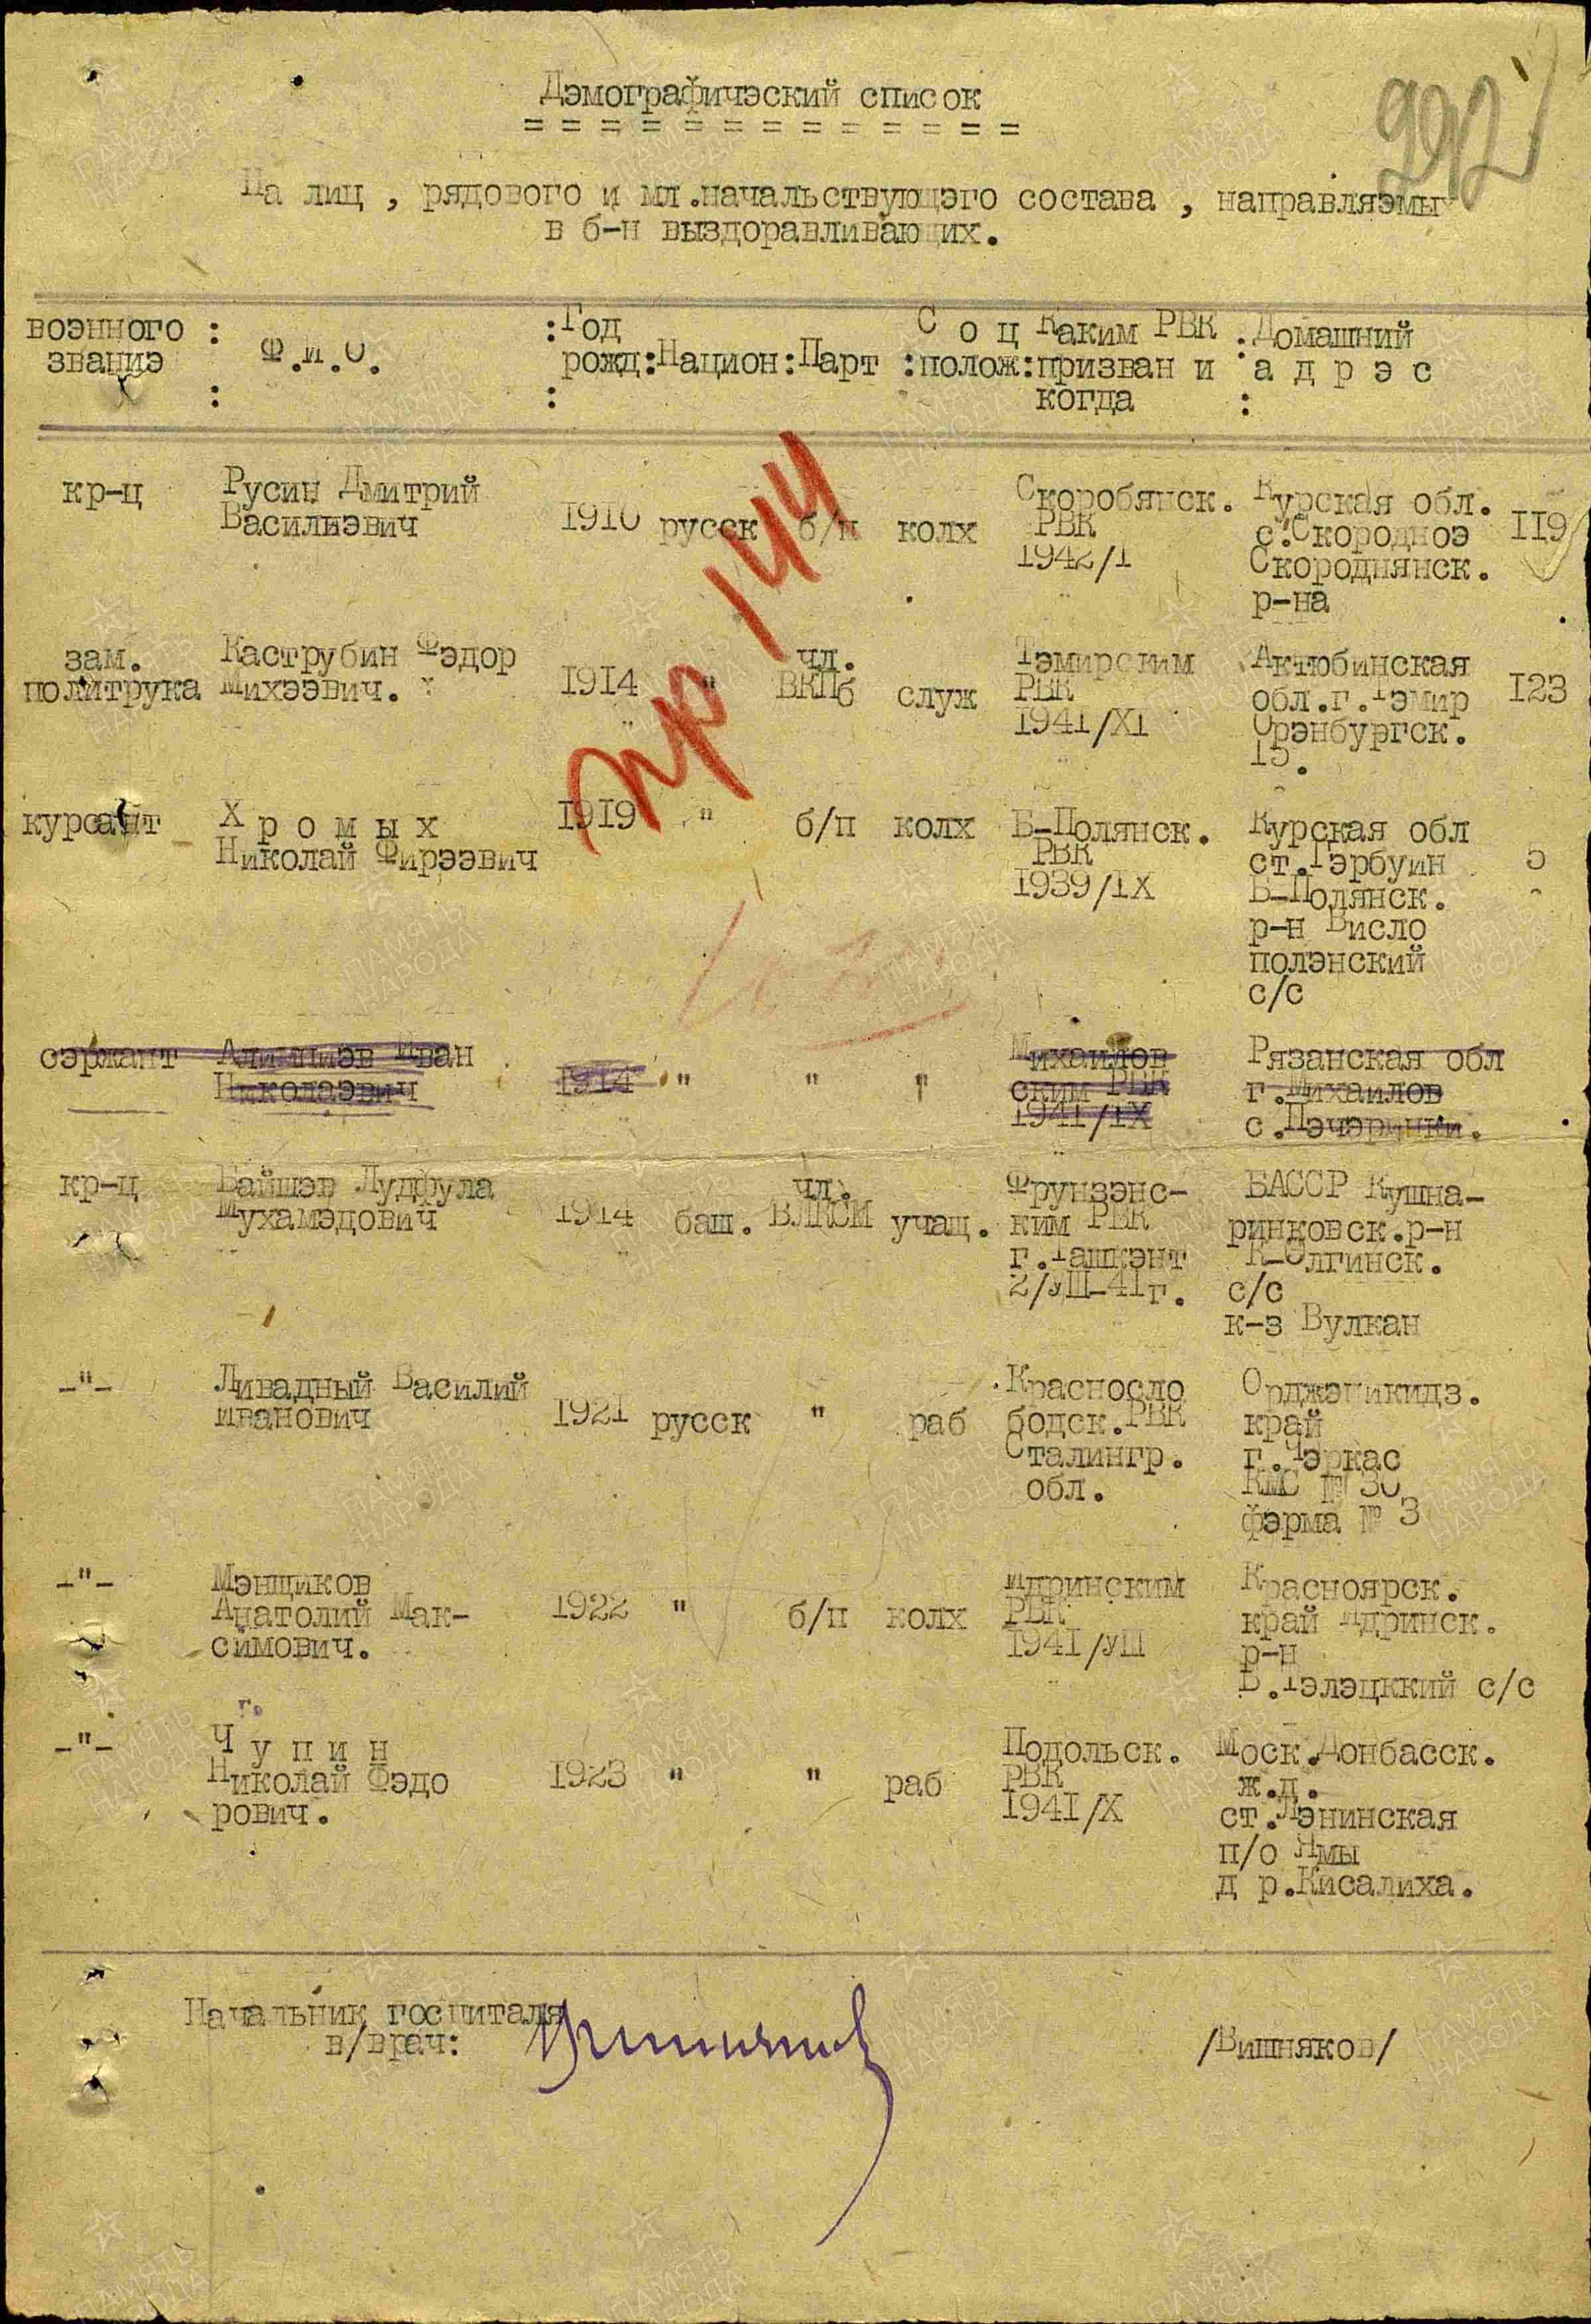 992
Дэмографичэский список
= = = = = = = = = = = = =
На лиц , рядового и мл.начальствующэго состава , направляэмы
в б-н выздоравливающих.
воэнного званиэ : Ф.и.О. : Год рожд : Национ : Парт : Соц полож : Каким РВК призван и когда : Домашний адрэс
кр-ц Русин Дмитрий
Василиэвич 1910 русск б/п колх
Скоробянск.
РВК
1942/I
Курская обл.
с.Скородноэ
Скороднянск.
р-на
II9
пр 144
зам.
политрука
Каструбин Фэдор
Михээвич. 1914 " чл.
ВКПб служ
Тэмирским
РВК
1941/XI
Актюбинская
обл.г.Тэмир
Орэнбургск.
I23
курсант
Х р о м ы х
Николай Фирээвич
1919 " б/п колх
Б-Полянск.
РВК
1939/IX
Курская обл
ст.Тэрбуин
Б-Полянск.
р-н Висло
полэнский
с/с
сэржант
Иван
Николаэвич
1914 " " "
Михайлов
ским РВК
1941/IX
Рязанская обл
г.Михаилов
с.
кр-ц
Байшэв Лудфула
Мухамэдович
1914 баш. чл.
ВЛКСМ учащ.
Фрунзэнс-
ким РВК
г.Ташкэнт
2/уШ-41г.
БАССР Кушна-
ринковск.р-н
К-Элгинск.
с/с
к-з Вулкан
-"-
Ливадный Василий
Иванович
1921 русск " раб
Краснослo
бодск.РВК
Сталингр.
обл.
Орджэникидз.
край
г.Чэркас
КМС № 30
фэрма № 3
-"-
Мэнщиков
Анатолий Мак-
симович.
1922 " б/п колх
Идринским
РВК
1941/уШ
Красноярск.
край Идринск.
р-н
В.Тэлэцккий с/с
-"-
Ч у п и н
Николай Фэдо
рович.
1923 " " раб
Подольск.
РВК
1941/Х
Моск.Донбасск.
ж.д.
ст.Лэнинская
п/о Ямы
д р.Кисалиха.
Начальник госпиталя
в/врач:
/Вишняков/